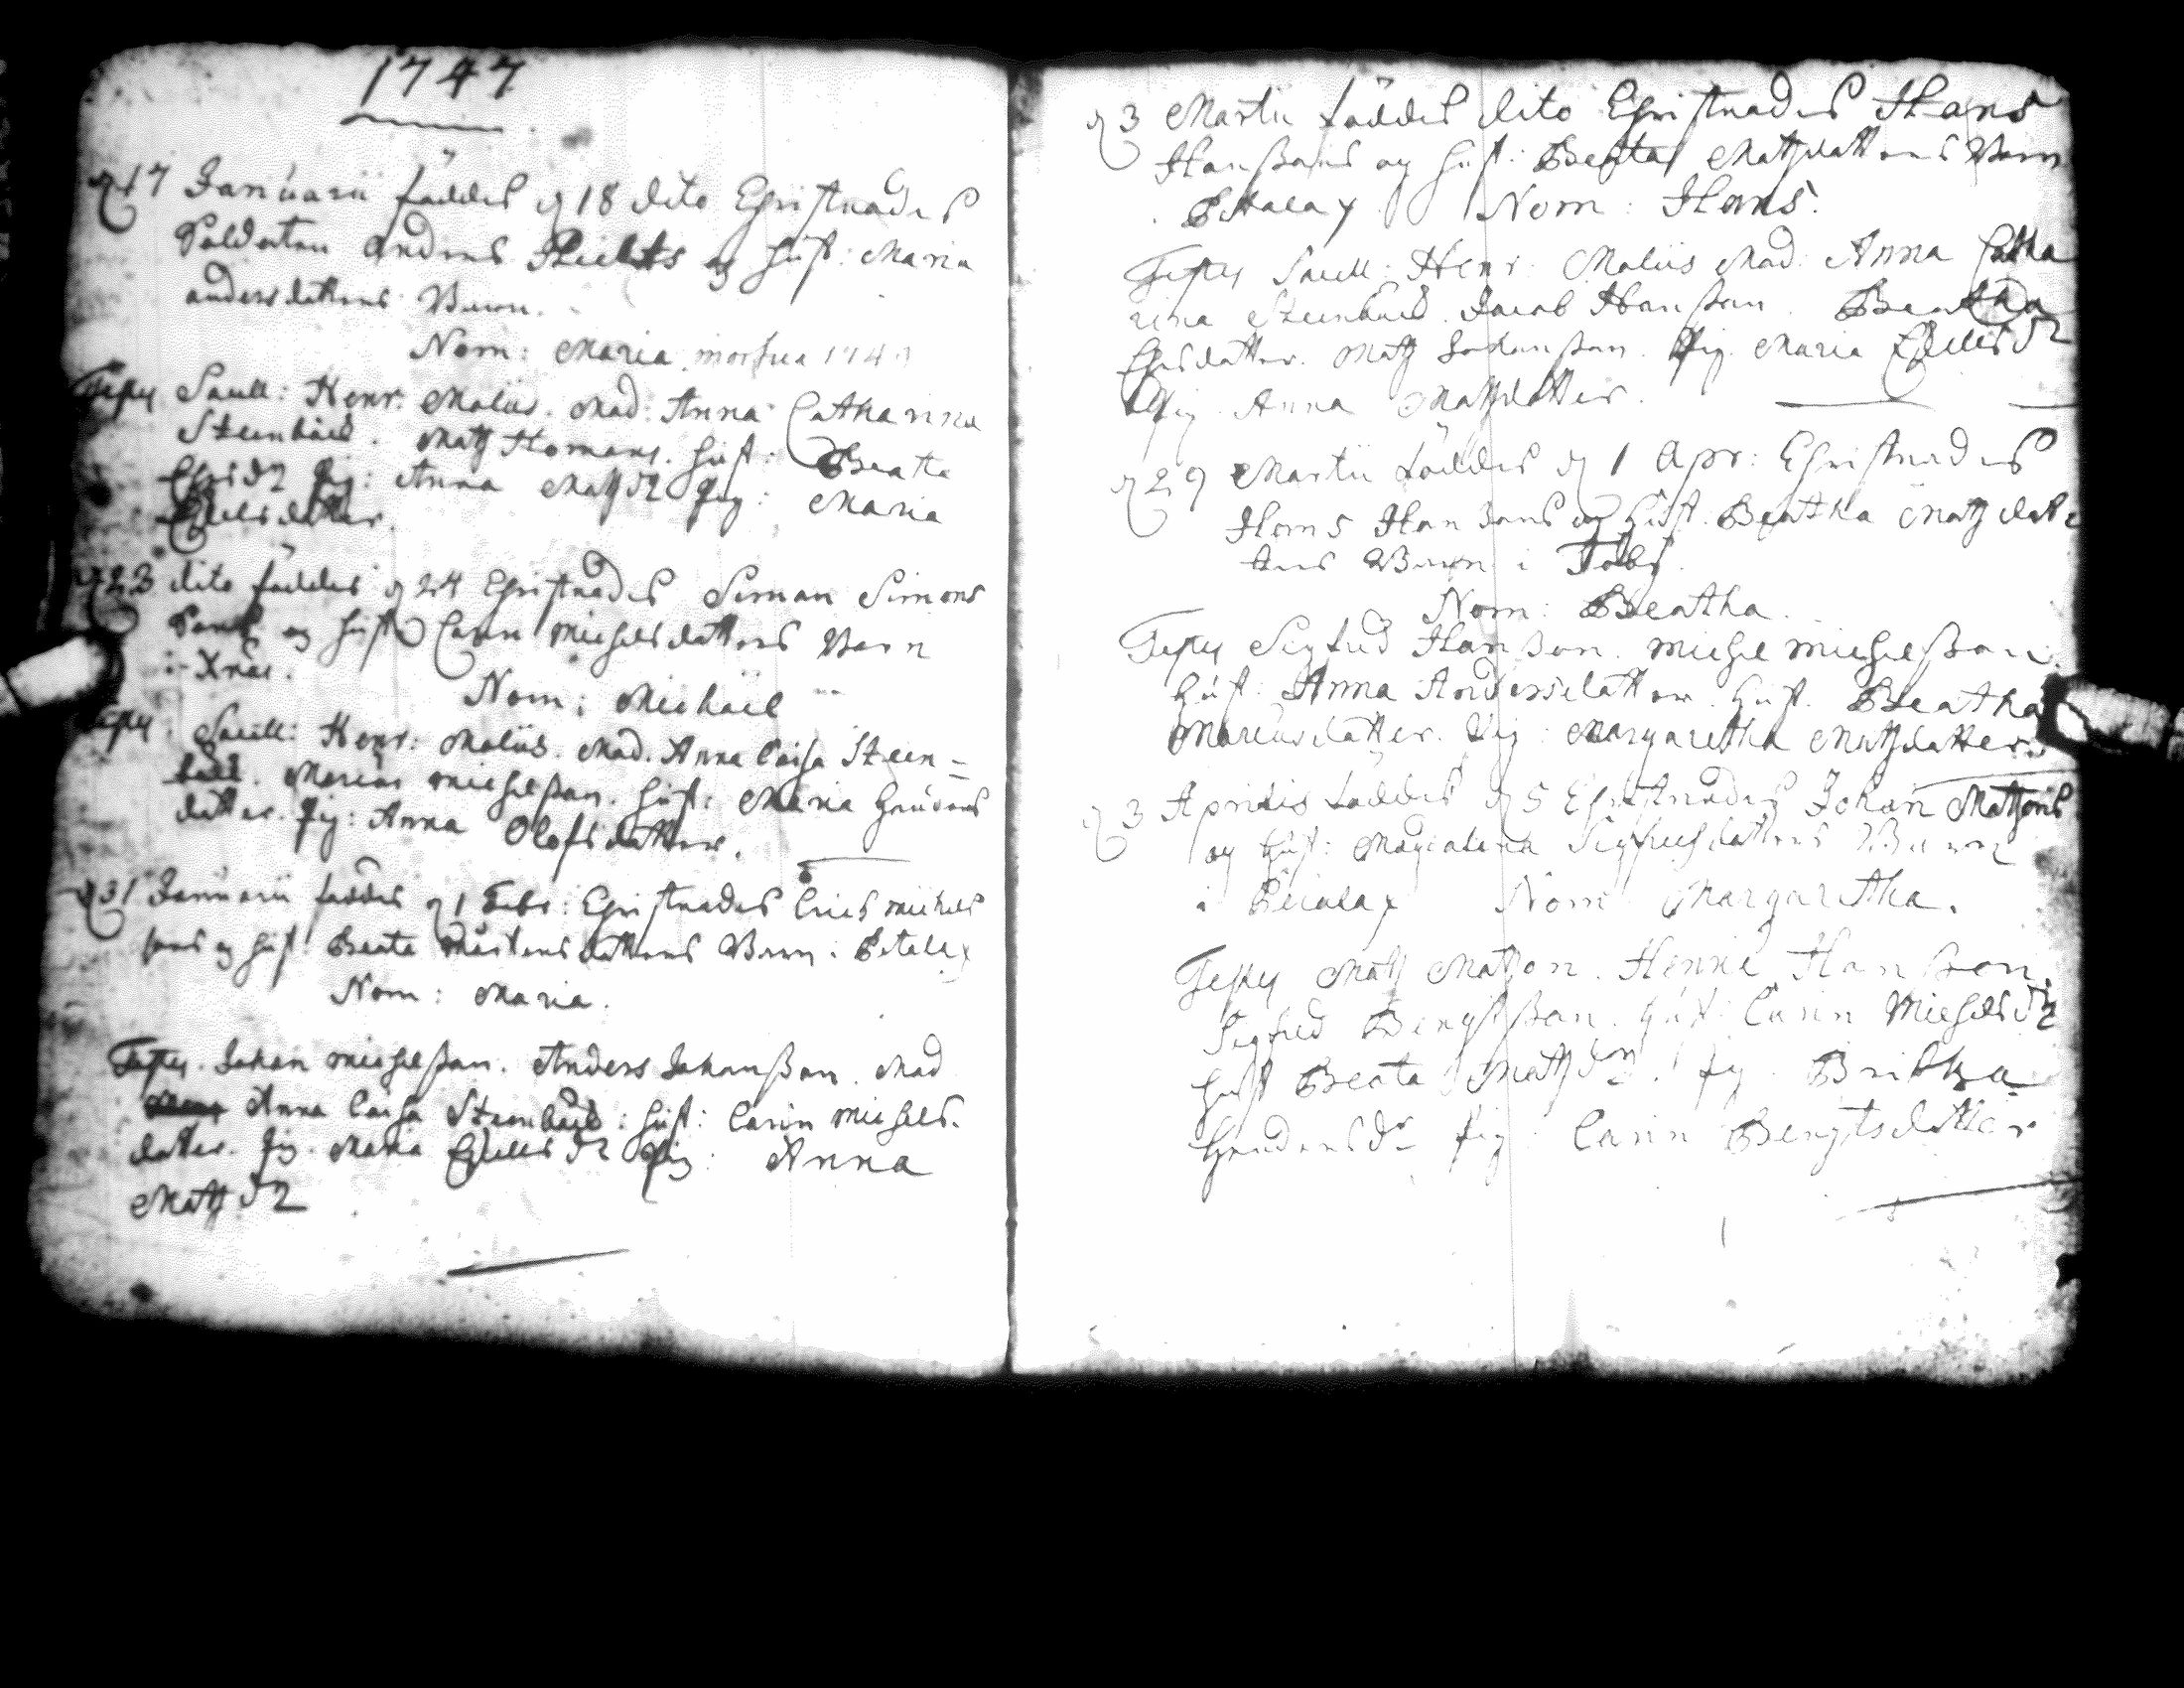 1747
d 17 Januarii föddes d 18 dito Christnades
Soldaten Anders Skielts og Hust: Maria
andersdatters Barn.
Nom: Maria mortua 174
Testes Sacell: Henr: Malüs. Mad: Anna Catharina
Steenbäck. Matz Homans. Hust: Beatta
Chrisdr Pig: Anna Matzdr Pig: Maria
Chielsdatter.
d 23 dito föddes d 24 Christnades Simon Simons
Sons og Hust Carin Michelsdatters Barn
i
Nom: Michäel
Testes. Sacell: Henr: Malüs. Mad. Anna Caisa Steen=
bäck. Marcus Michelsson. Hust: Maria Henders
datter. Pig: Anna Olofsdatter.
d 31 Januarii föddes d 1 Febr: Christnades Erics Michels
sons og Hust Beata Mårtensdatters Barn i Bitalax
Nom: Maria.
Testes. Johan Michelsson. Anders Johansson. Mad
Anna Caisa Steenbäck: Hust: Carin Michels-
datter. Pig. Maria Chielsdr Pig: Anna
Matzdr
d 3 Martii föddes dito Christnades Hans
Hanssons og Hust: Beata Matzdatters Barn
Nom: Hans.
Testes Sacell: Henr: Malüs Mad: Anna Catha
rina Steenbäck. Jacob Hansson. Beatha
Chrisdatter. Matz Johansson. Pig. Maria Chielsdr
Pig. Anna Matzdatter.
d 29 Martii föddes d 1 Apr: Christnades
Hans Hansons og Hust. Beatha Matzdat
ters Barn i Töby.
Nom: Beatha.
Testes Sigfrid Hansson. Michel Michelsson.
Hust: Anna Andersdatter. Hust. Beatha
Marcusdatter. Pig: Margaretha Matzdatter.
d 3 Aprilis föddes d 5 Christnades Johan Matzons
og Hust: Magdalena Sigfredsdatters Barn
i Nom Margaretha.
Testes Matz Matzon. Henric Hansson.
Sigfrid Bengtsson. Hust: Carin Michelsdr
Hust Beata Matzdr. Pig. Britha
Hendersdr Pig: Carin Bengtsdatter